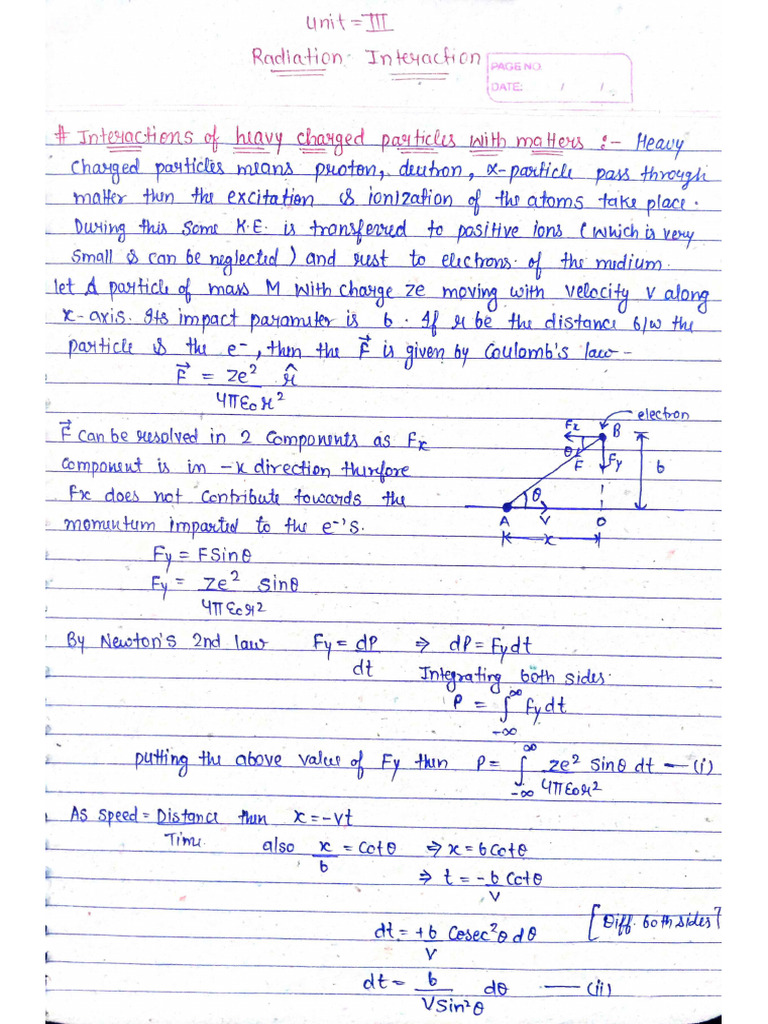 Unit = III
Radiation Interaction
PAGE NO.
DATE: / /
# Interactions of heavy charged particles with matters :- Heavy
charged particles means proton, deutron, α-particle pass through
matter then the excitation & ionization of the atoms take place.
During this some K.E. is transferred to positive ions (which is very
small & can be neglected) and rest to electrons of the medium.
let A particle of mass M with charge ze moving with velocity v along
x-axis. Its impact paramiter is b. If r be the distance b/w the
particle & the e⁻, then the F⃗ is given by Coulomb's law -
F⃗ = ze² r̂
4πε₀r²
electron
Fx
B
θ
F
Fy
b
θ
A
V
O
x
F⃗ can be resolved in 2 components as Fx
component is in -x direction therefore
Fx does not contribute towards the
momentum imparted to the e⁻'s.
Fy = F Sinθ
Fy = ze² Sinθ
4πε₀r²
By Newton's 2nd law Fy = dP ⇒ dP = Fy dt
dt Integrating both sides.
P = ∫ Fy dt
∞
-∞
putting the above value of Fy then P = ∫ ze² Sinθ dt — (i)
∞
-∞ 4πε₀r²
As Speed = Distance then x = -vt
Time.
also x = Cotθ ⇒ x = b Cotθ
b
⇒ t = -b Cotθ
V
dt = +b Cosec²θ dθ [Diff. both sides]
V
dt = b dθ — (ii)
V Sin²θ